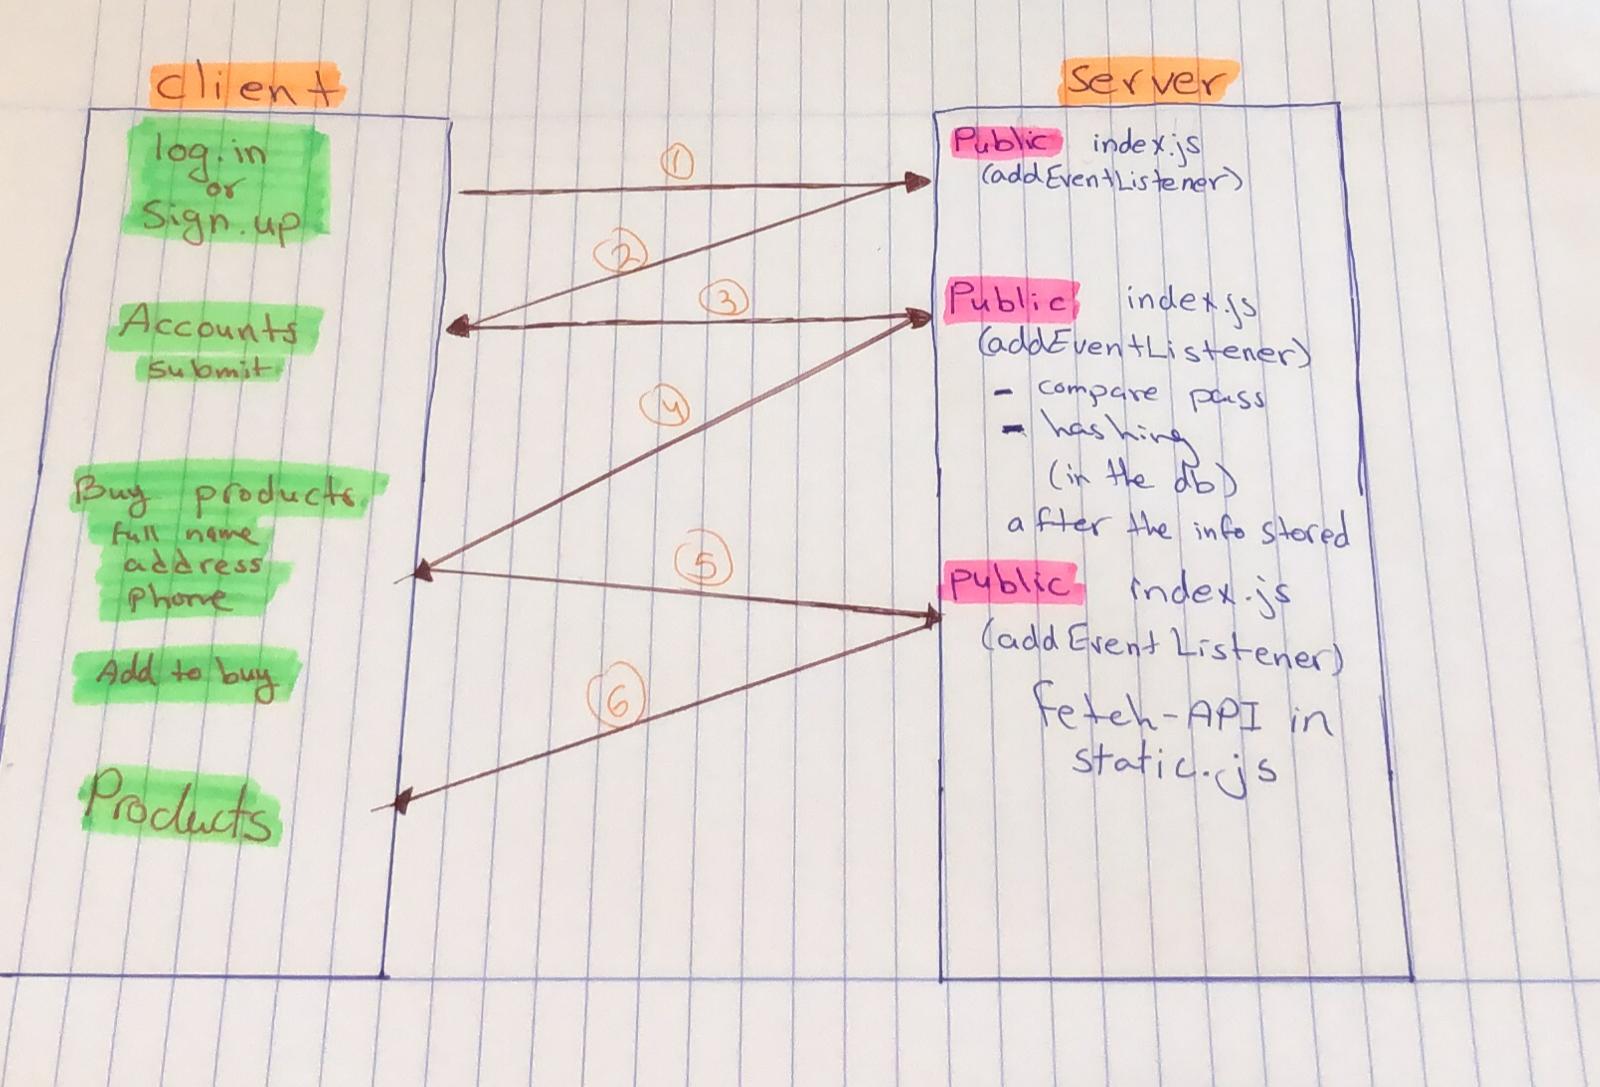 client
log.in
or
Sign.up
Accounts
submit
Buy products
full name
address
phone
Add to buy
Products
1
2
3
4
5
6
server
Public index.js
(addEventListener)
Public index.js
(addEventListener)
- compare pass
- hashing
(in the db)
after the info stored
public index.js
(addEvent Listener)
fetch-API in
static.js